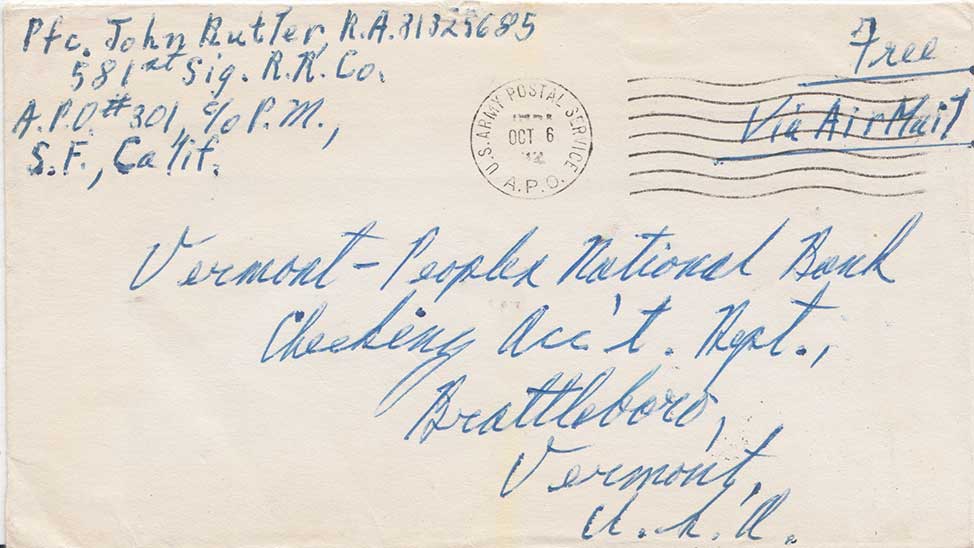 Pfc. John Butler, R.A. 31323685
581st Sig. R.R. Co.
A.P.O. #301, c/o P.M.,
S.F., Calif.
U.S. ARMY POSTAL SERVICE
OCT 6
A.P.O.
Free
Via Air Mail
Vermont-Peoples National Bank
Checking Acc't. Dept.,
Brattleboro,
Vermont,
U.S.A.